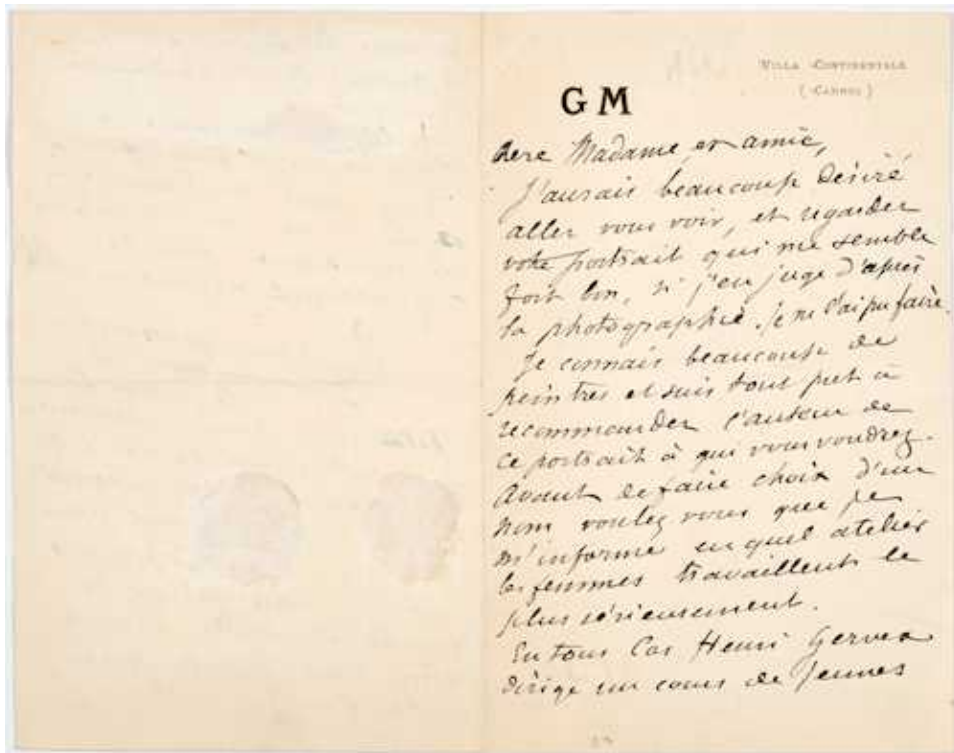 VILLA CONTINENTALE
(CANNES)
GM
Chere Madame et amie,
J'aurais beaucoup désiré
aller vous voir, et regarder
votre portrait qui me semble
fort bon, si j'en juge d'après
la photographie. Je ne l'ai pu faire.
Je connais beaucoup de
peintres et suis tout pret à
recommander l'auteur de
ce portrait à qui vous voudrez.
Avant de faire choix d'un
nom voulez vous que je
m'informe en quel atelier
les femmes travaillent le
plus sérieusement.
En tous cas Henri Gervex
dirige un cours de jeunes